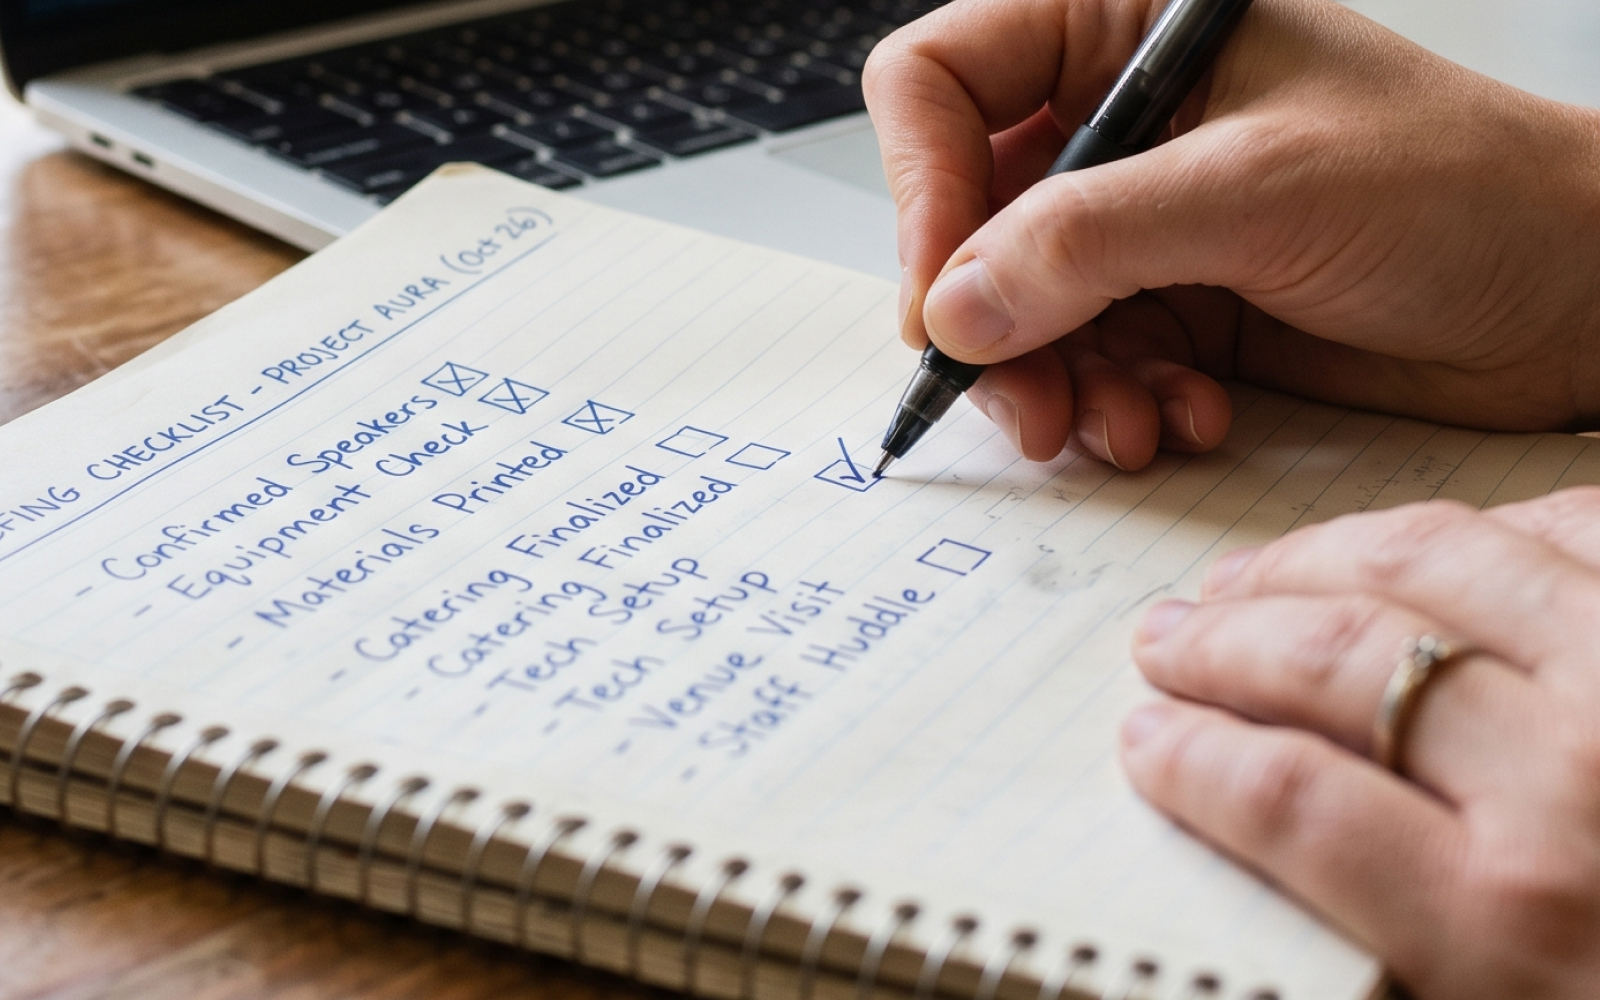 EFING CHECKLIST - PROJECT AURA (Oct 26)
- Confirmed Speakers ☒
- Equipment Check ☒
- Materials Printed ☒
- Catering Finalized ☐
- Catering Finalized ☐
- Tech Setup
- Tech Setup ☑
- Venue Visit
- Staff Huddle ☐